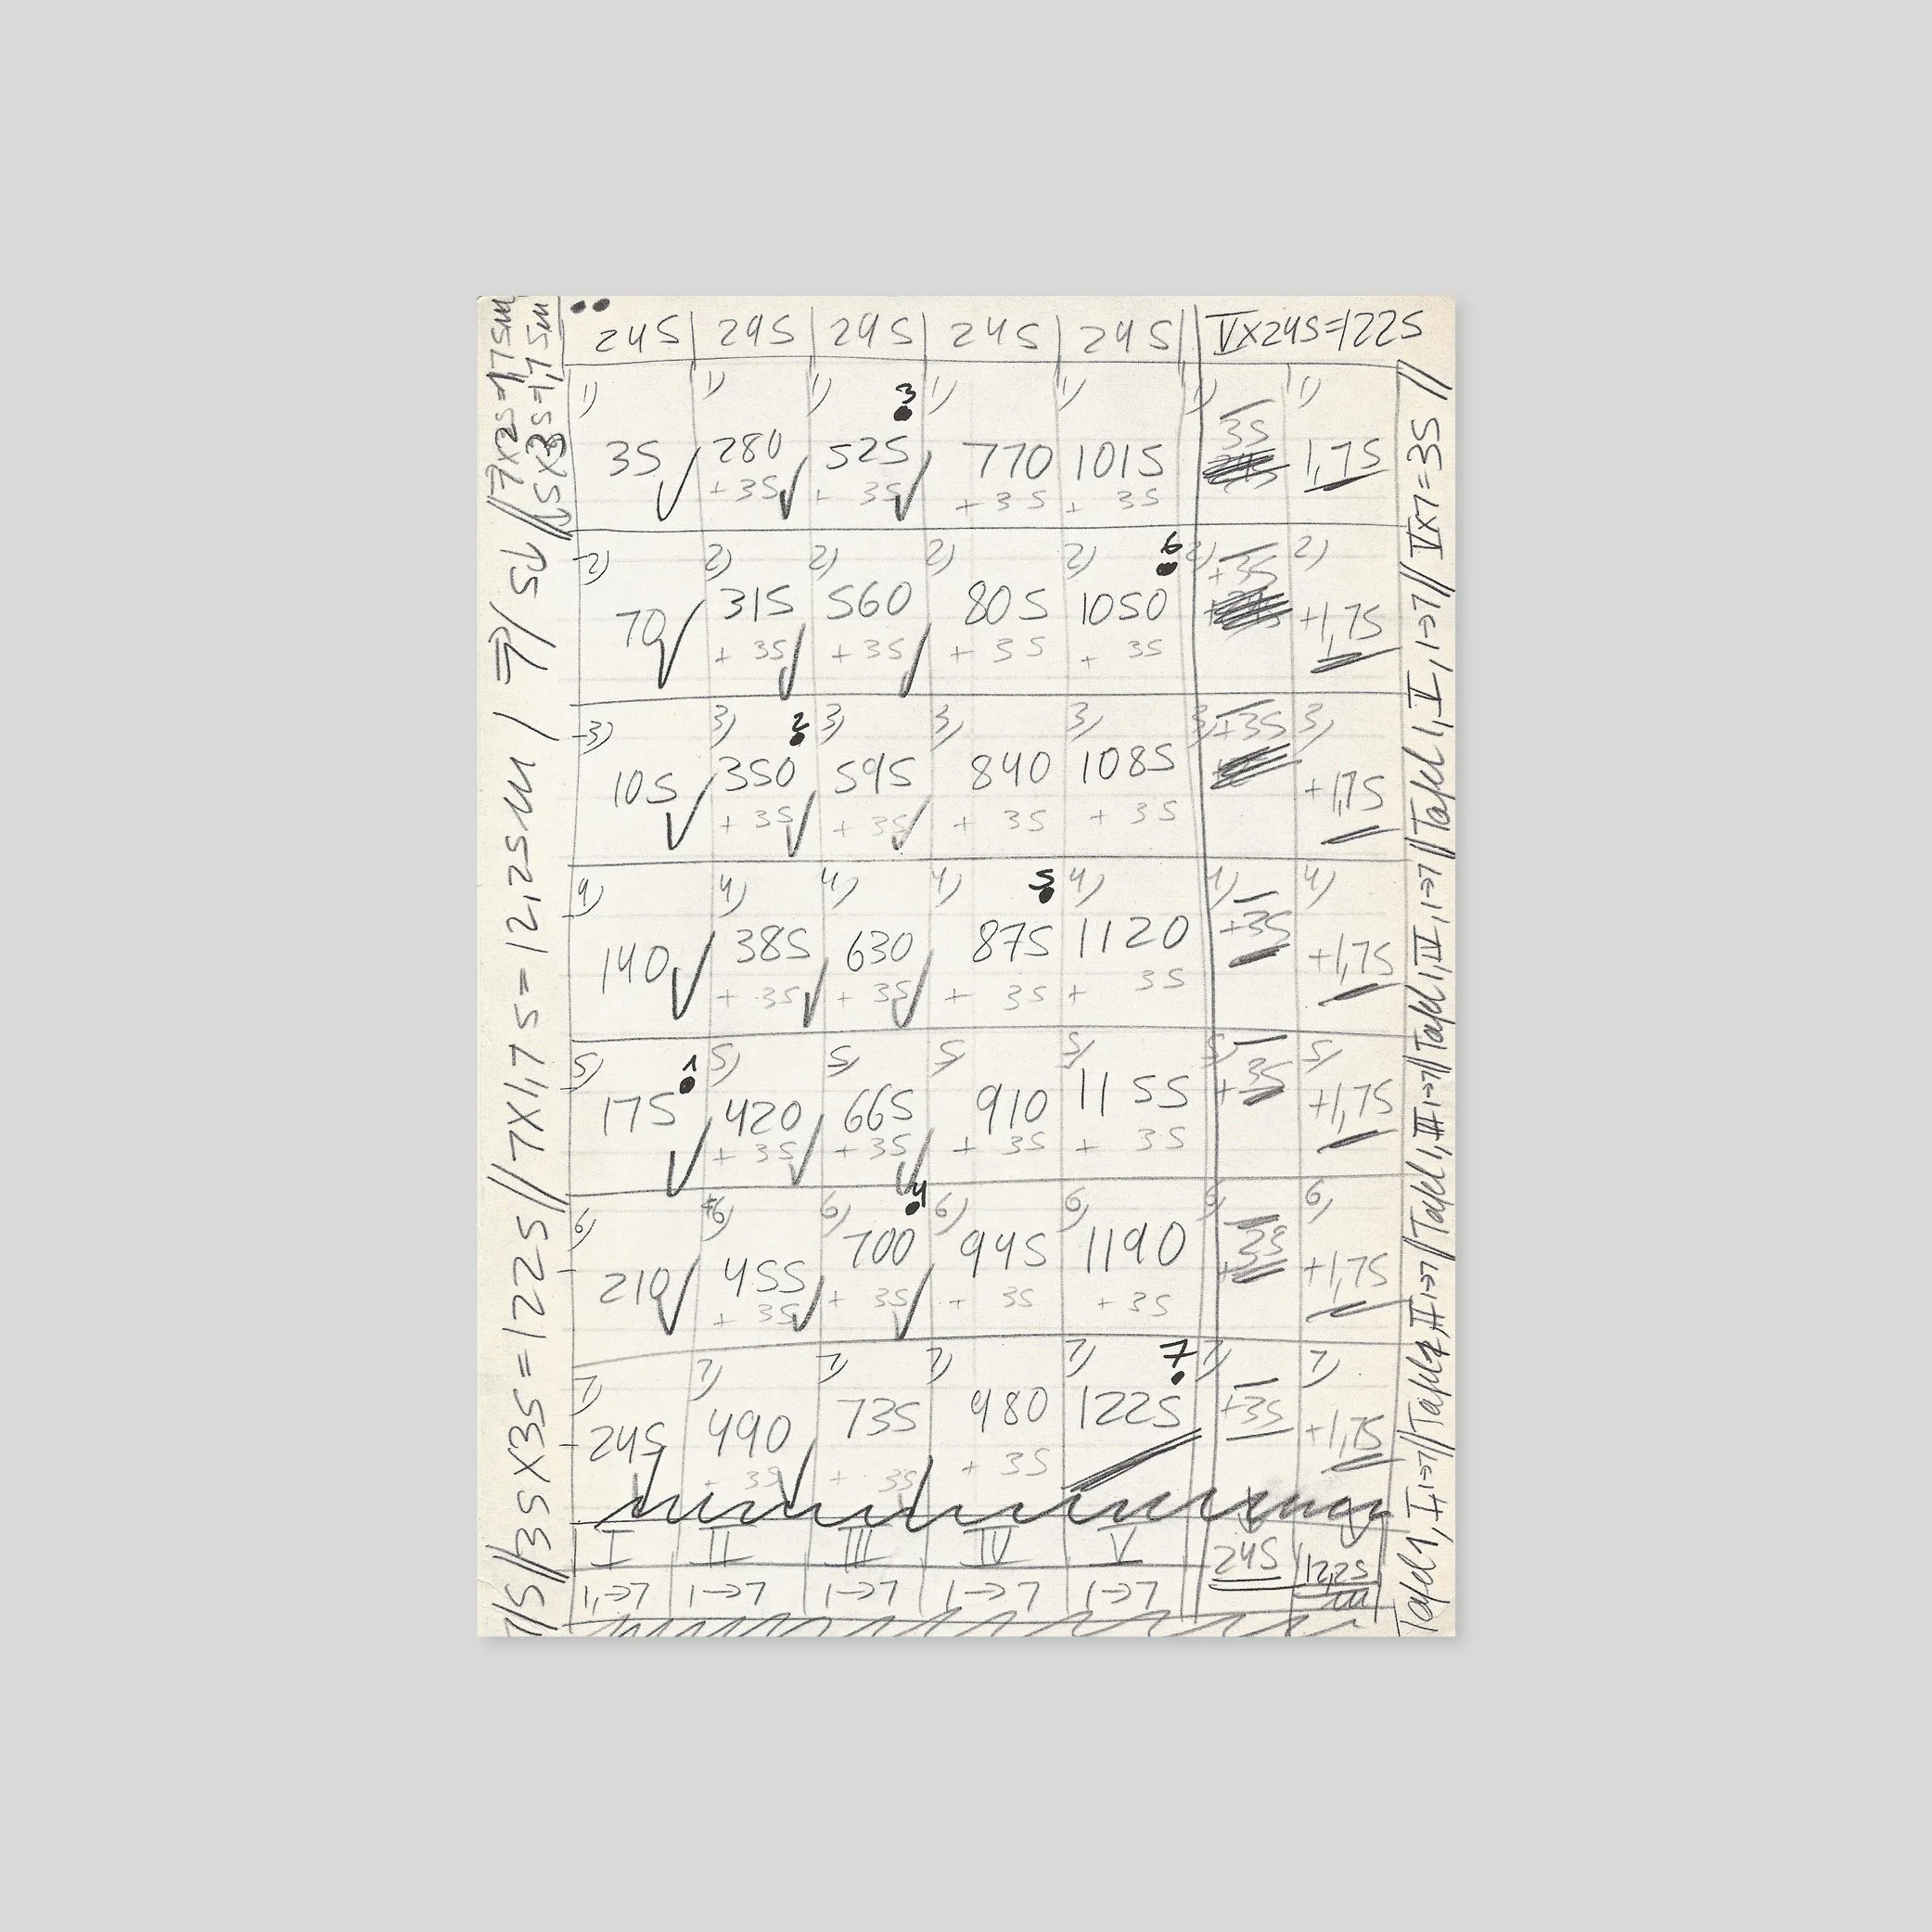 245 245 245 245 245 V×245=1225
1) 1) 1) 3 1) 1) 1) 1)
35 280 525 770 1015 35 1,75
+35 +35 +35 +35
2) 2) 2) 2) 2) 6 2) 2)
70 315 560 805 1050 +35 +1,75
+35 +35 +35 +35
3) 3) 2 3) 3) 3) 3) 3)
105 350 595 840 1085 +35 +1,75
+35 +35 +35 +35
4) 4) 4) 4) 5 4) 4) 4)
140 385 630 875 1120 +35 +1,75
+35 +35 +35 +35
5) 1 5) 5) 5) 5) 5) 5)
175 420 665 910 1155 +35 +1,75
+35 +35 +35 +35
6) 6) 6) 4 6) 6) 6) 6)
210 455 700 945 1190 +35 +1,75
+35 +35 +35 +35
7) 7) 7) 7) 7) 7 7) 7)
245 490 735 980 1225 +35 +1,75
+35 +35 +35
I II III IV V 245 12,25 m
1,→7 1→7 1→7 1→7 1→7
7/5//35×35=1225//7×1,75=12,25m / 7/ 5V //7×25=1,75m
5×35=1,75m
Tafel 1, I 1→7//Tafel 2, II 1→7//Tafel 1, III 1→7//Tafel 1, IV, 1→7//Tafel 1, V, 1→7// V×7=35 //